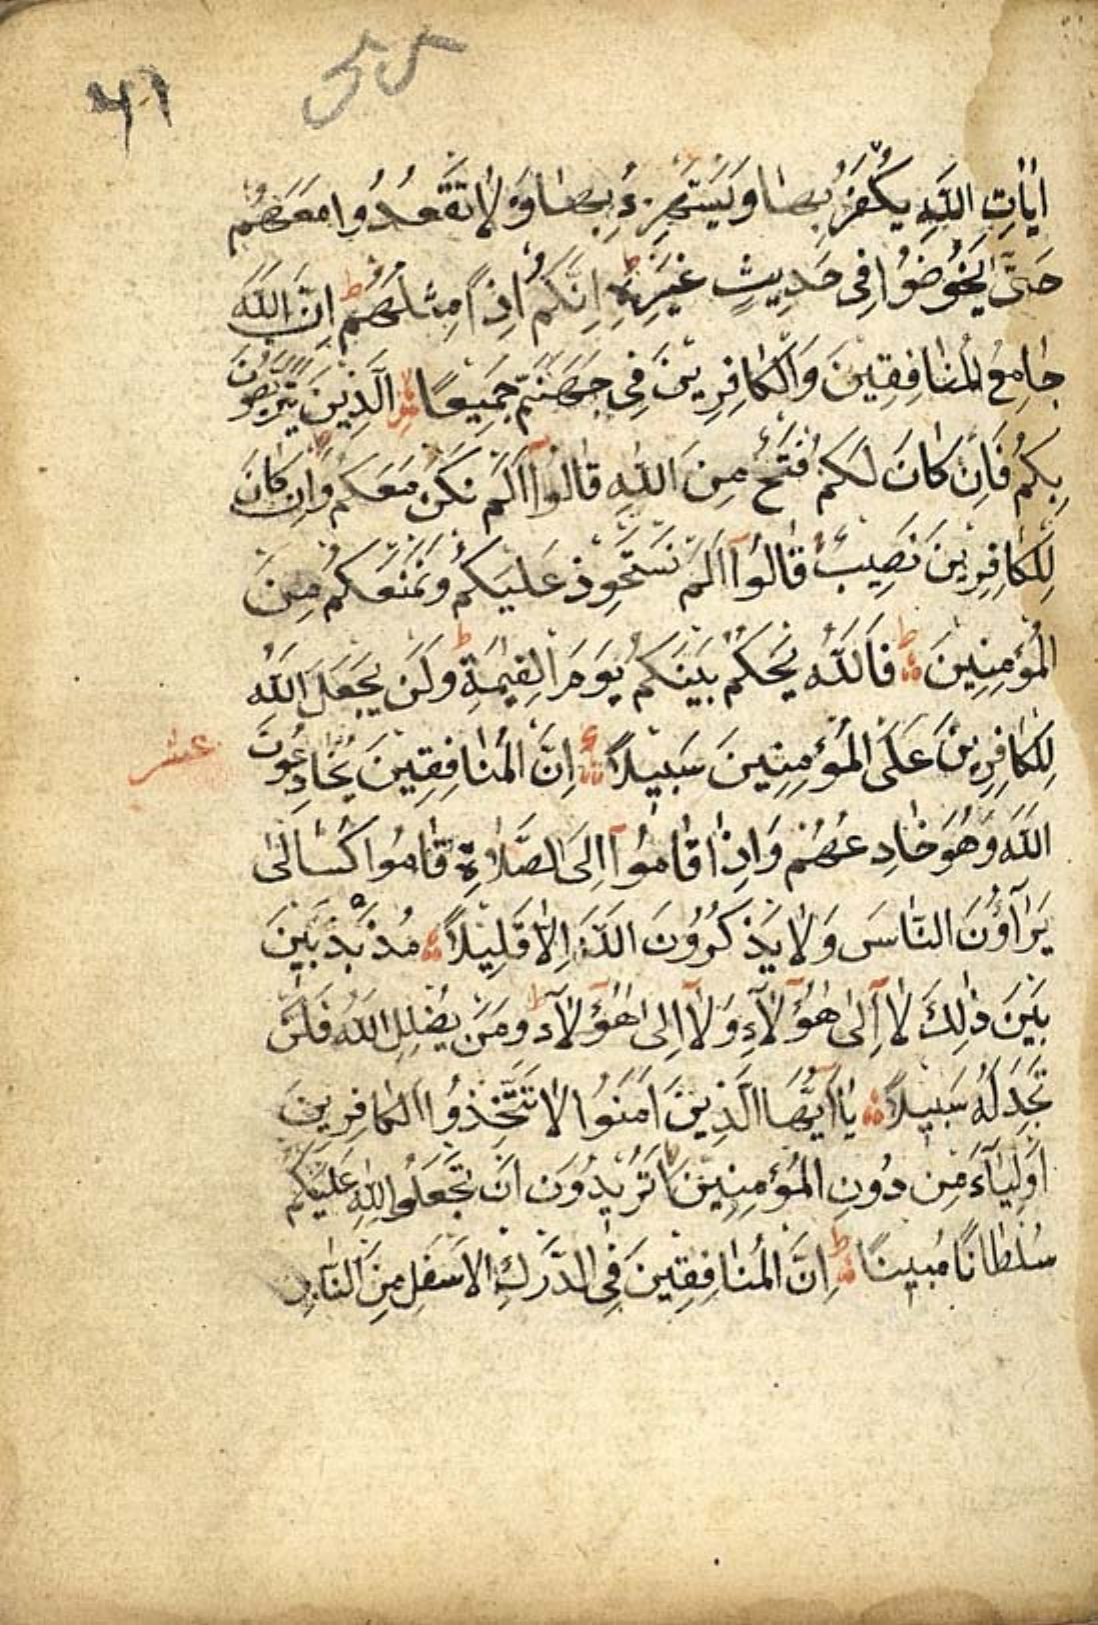 55
٤١
اٰيٰاتِ اللّٰهِ يُكْفَرُ بِهٰا وَيُسْتَهْزَءُ بِهٰا وَلٰا تَقْعُدُوا مَعَهُمْ
حَتّٰى يَخُوضُوا فِى حَدِيثٍ غَيْرِهِ ط اِنَّكُمْ اِذًا مِثْلُهُمْ ط اِنَّ اللّٰهَ
جٰامِعُ الْمُنٰافِقِينَ وَالْكٰافِرِينَ فِى جَهَنَّمَ جَمِيعًا لا الَّذِينَ يَتَرَبَّصُونَ
بِكُمْ فَاِنْ كٰانَ لَكُمْ فَتْحٌ مِنَ اللّٰهِ قٰالُوا اَلَمْ نَكُنْ مَعَكُمْ وَاِنْ كٰانَ
لِلْكٰافِرِينَ نَصِيبٌ قٰالُوا اَلَمْ نَسْتَحْوِذْ عَلَيْكُمْ وَنَمْنَعْكُمْ مِنَ
الْمُؤْمِنِينَ ط فَاللّٰهُ يَحْكُمُ بَيْنَكُمْ يَوْمَ الْقِيٰمَةِ ط وَلَنْ يَجْعَلَ اللّٰهُ
لِلْكٰافِرِينَ عَلَى الْمُؤْمِنِينَ سَبِيلًا اِنَّ الْمُنٰافِقِينَ يُخٰادِعُونَ
عشر
اللّٰهَ وَهُوَ خٰادِعُهُمْ وَاِذٰا قٰامُوا اِلَى الصَّلٰوةِ قٰامُوا كُسٰالٰى
يُرٰاؤُنَ النّٰاسَ وَلٰا يَذْكُرُونَ اللّٰهَ اِلّٰا قَلِيلًا مُذَبْذَبِينَ
بَيْنَ ذٰلِكَ لٰا اِلٰى هٰؤُلٰاءِ وَلٰا اِلٰى هٰؤُلٰاءِ ط وَمَنْ يُضْلِلِ اللّٰهُ فَلَنْ
تَجِدَ لَهُ سَبِيلًا يٰا اَيُّهَا الَّذِينَ اٰمَنُوا لٰا تَتَّخِذُوا الْكٰافِرِينَ
اَوْلِيٰاءَ مِنْ دُونِ الْمُؤْمِنِينَ اَتُرِيدُونَ اَنْ تَجْعَلُوا لِلّٰهِ عَلَيْكُمْ
سُلْطٰانًا مُبِينًا ط اِنَّ الْمُنٰافِقِينَ فِى الدَّرْكِ الْاَسْفَلِ مِنَ النّٰارِ